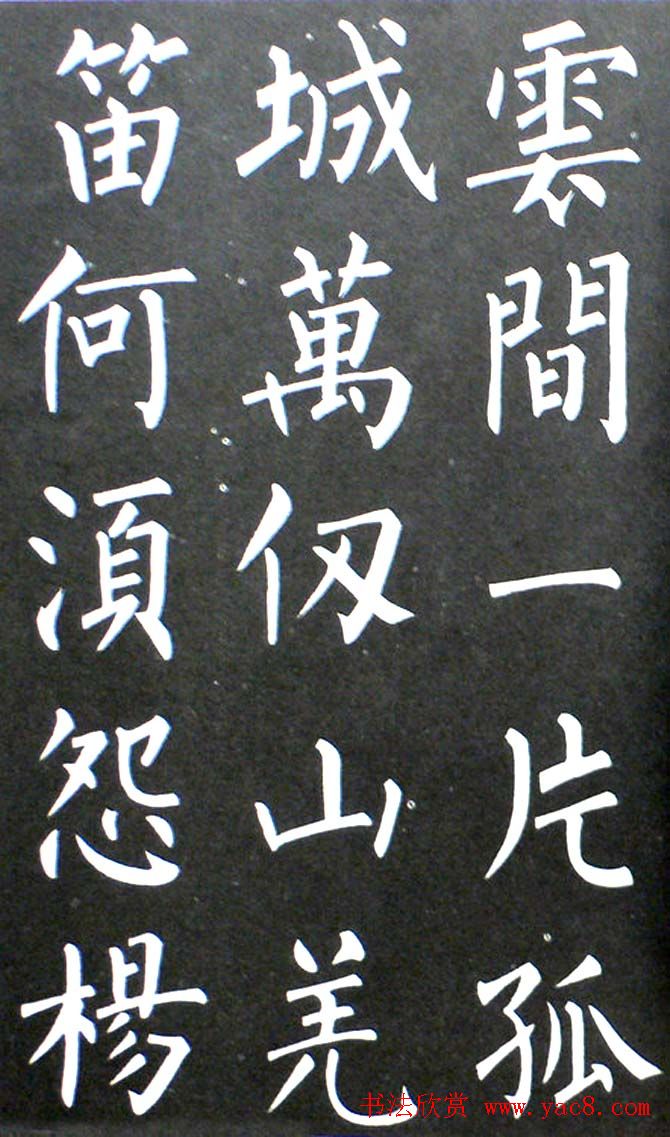 雲間一片孤
城萬仞山羌
笛何湏怨楊
书法欣赏 www.yac8.com